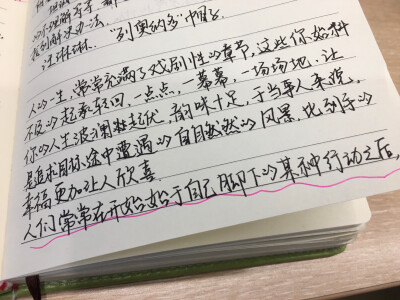 找到解决办法。
汪琳琳. "列奥纳多"帽子.
人的一生,常常充满了戏剧性的章节,这些你始料
不及的起承转回,一点点,一幕幕,一场场地,让
你的人生波澜壮起伏,韵味十足,于当事人来说,
是追求目标途中遭遇的自自然然的风景,比到手的
幸福更加让人欣喜
人们常常在开始始于自己脚下的某种行动之后,